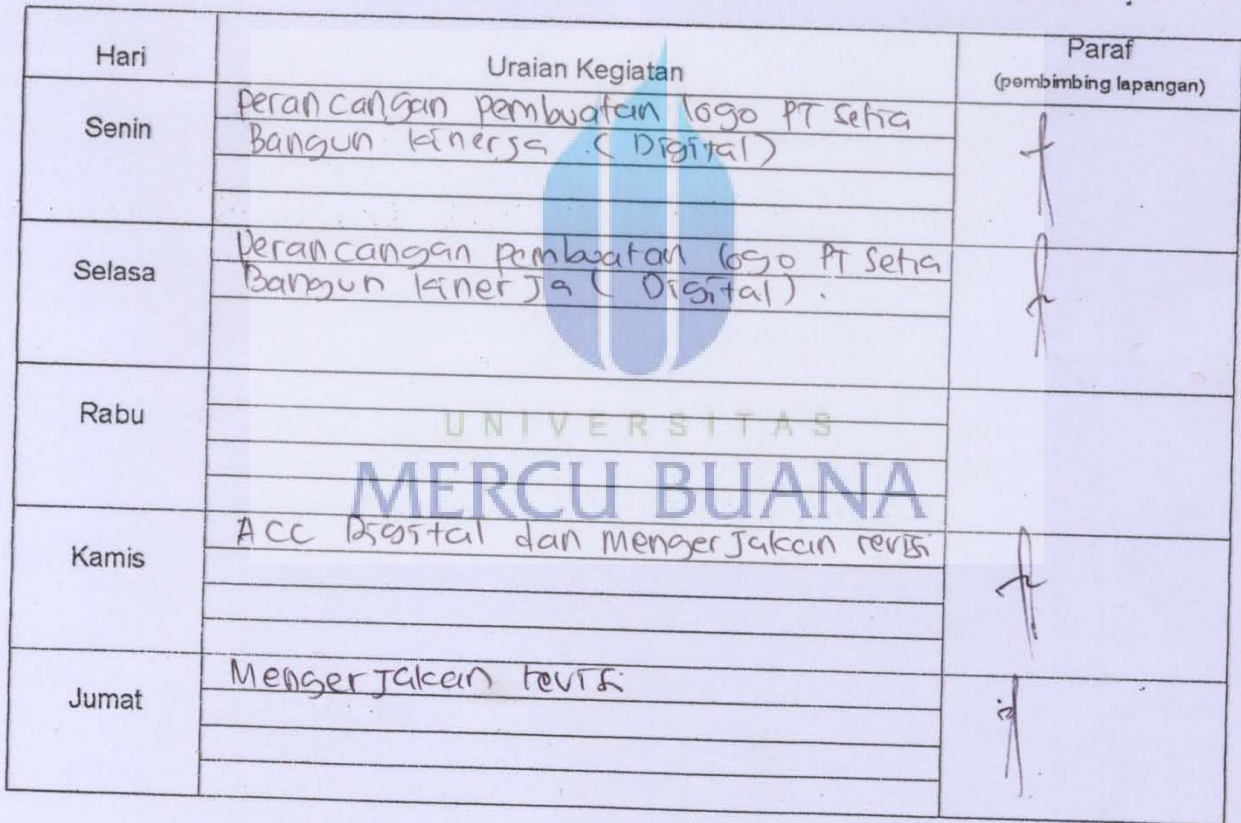 Hari
Uraian Kegiatan
Paraf
(pembimbing lapangan)
Senin
Perancangan pembuatan logo PT Setia
Bangun Kinerja (Digital)
Selasa
Perancangan pembuatan logo PT Setia
Bangun Kinerja (Digital).
Rabu
UNIVERSITAS
MERCU BUANA
Kamis
ACC Digital dan Mengerjakan revisi
Jumat
Mengerjakan revisi